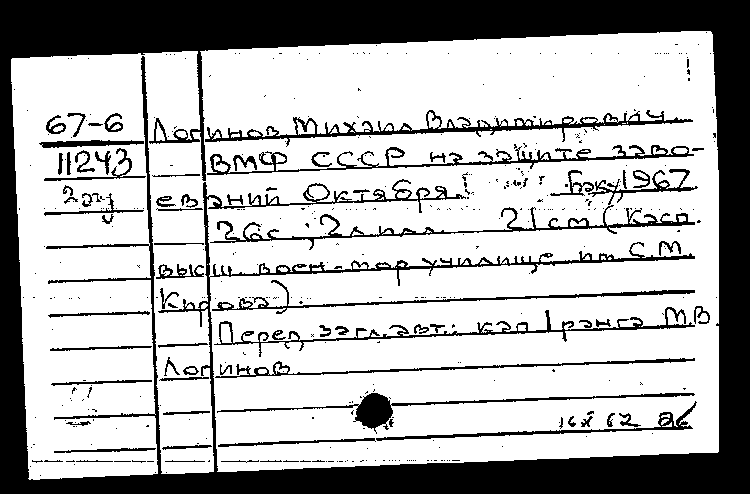 67-6 Логинов, Михаил Владимирович.
11243 ВМФ СССР на защите заво-
2 эк еваний Октября. Баку, 1967
26с.; 2л. илл. 21 см (Касп.
высш. воен-мор училище им С.М.
Кирова).
Перед загл. авт.: кап 1 ранга М.В.
Логинов.